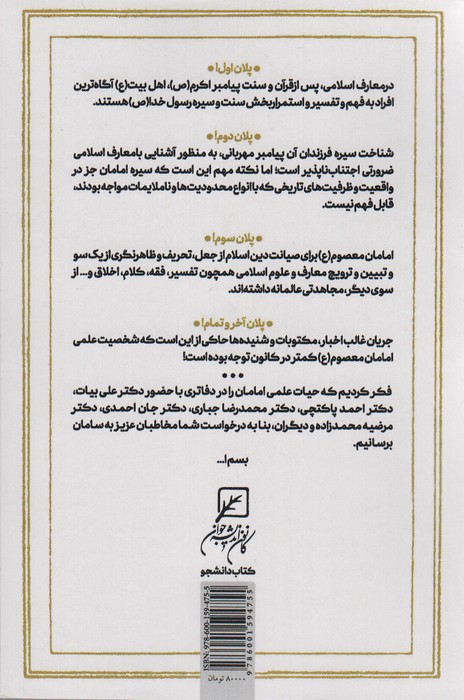 • پلان اول! •
در معارف اسلامی، پس از قرآن و سنت پیامبر اکرم(ص)، اهل بیت(ع) آگاه‌ترین
افراد به فهم و تفسیر و استمراربخش سنت و سیره رسول خدا(ص) هستند.
• پلان دوم! •
شناخت سیره فرزندان آن پیامبر مهربانی، به منظور آشنایی با معارف اسلامی
ضرورتی اجتناب‌ناپذیر است؛ اما نکته مهم این است که سیره امامان جز در
واقعیت و ظرفیت‌های تاریخی که با انواع محدودیت‌ها و ناملایمات مواجه بودند،
قابل فهم نیست.
• پلان سوم! •
امامان معصوم(ع) برای صیانت دین اسلام از جعل، تحریف و ظاهرنگری از یک سو
و تبیین و ترویج معارف و علوم اسلامی همچون تفسیر، فقه، کلام، اخلاق و... از
سوی دیگر، مجاهدتی عالمانه داشته‌اند.
• پلان آخر و تمام! •
جریان غالب اخبار، مکتوبات و شنیده‌ها حاکی از این است که شخصیت علمی
امامان معصوم(ع) کمتر در کانون توجه بوده است!
•••
فکر کردیم که حیات علمی امامان را در دفاتری با حضور دکتر علی بیات،
دکتر احمد پاکتچی، دکتر محمدرضا جباری، دکتر جان احمدی، دکتر
مرضیه محمدزاده و دیگران، بنا به درخواست شما مخاطبان عزیز به سامان
برسانیم.
بسم ا...
کانون اندیشه جوان
کتاب دانشجو
ISBN: 978-600-159-475-5
9786001594755
۸۰۰۰۰ تومان